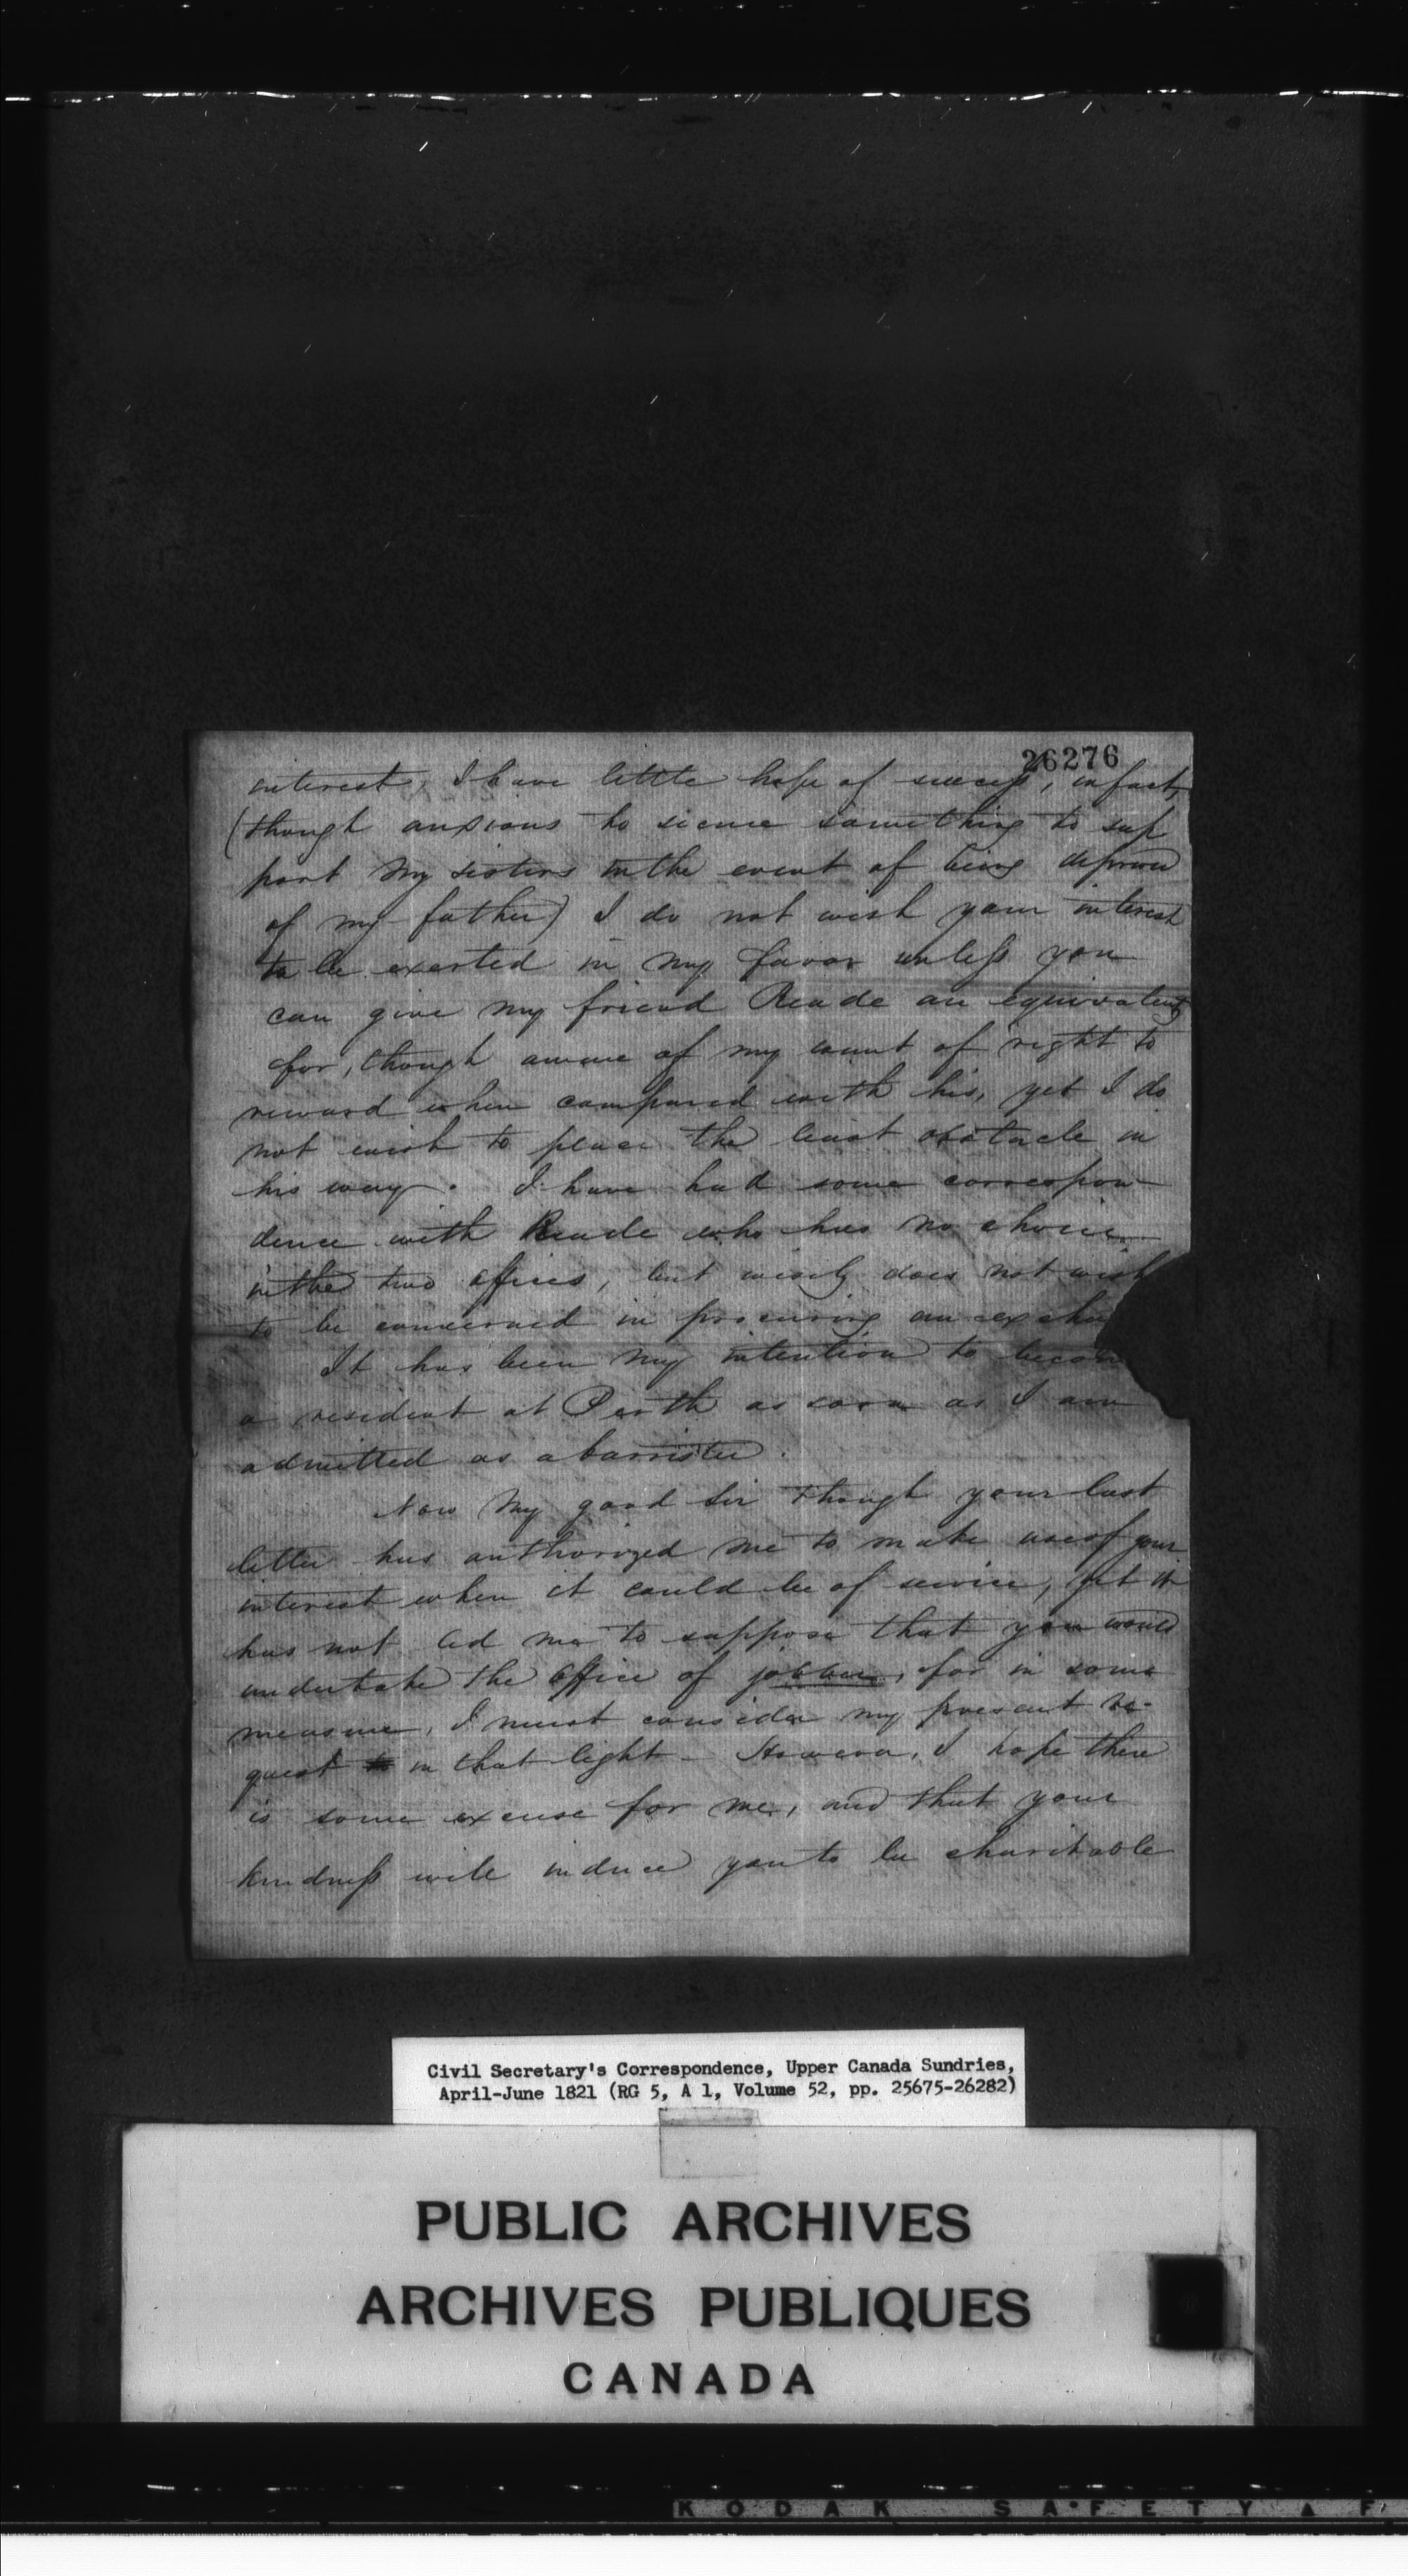 26276
interest, I have little hope of success, infact,
(though anxious to secure something to sup
port my sisters in the event of being deprived
of my father) I do not wish your interest
to be exerted in my favor unless you
can give my friend Reade an equivalent
for, though aware of my want of right to
reward when compared with his, yet I do
not wish to place the least obstacle in
his way. I have had some correspon-
dence with Reade who has no choice
in the two offices, but wisely does not wish
to be concerned in procuring an excha
It has been my intention to becom
a resident at Perth as soon as I am
admitted as a barrister.
Now my good Sir though your last
letter has authorized me to make use of your
interest when it could be of service, yet it
has not led me to suppose that you would
undertake the office of jobber, for in some
measure, I must consider my present re-
quest in that light - However, I hope there
is some excuse for me, and that your
kindness will induce you to be charitable
Civil Secretary's Correspondence, Upper Canada Sundries,
April-June 1821 (RG 5, A 1, Volume 52, pp. 25675-26282)
PUBLIC ARCHIVES
ARCHIVES PUBLIQUES
CANADA
KODAK SAFETY ▲ F